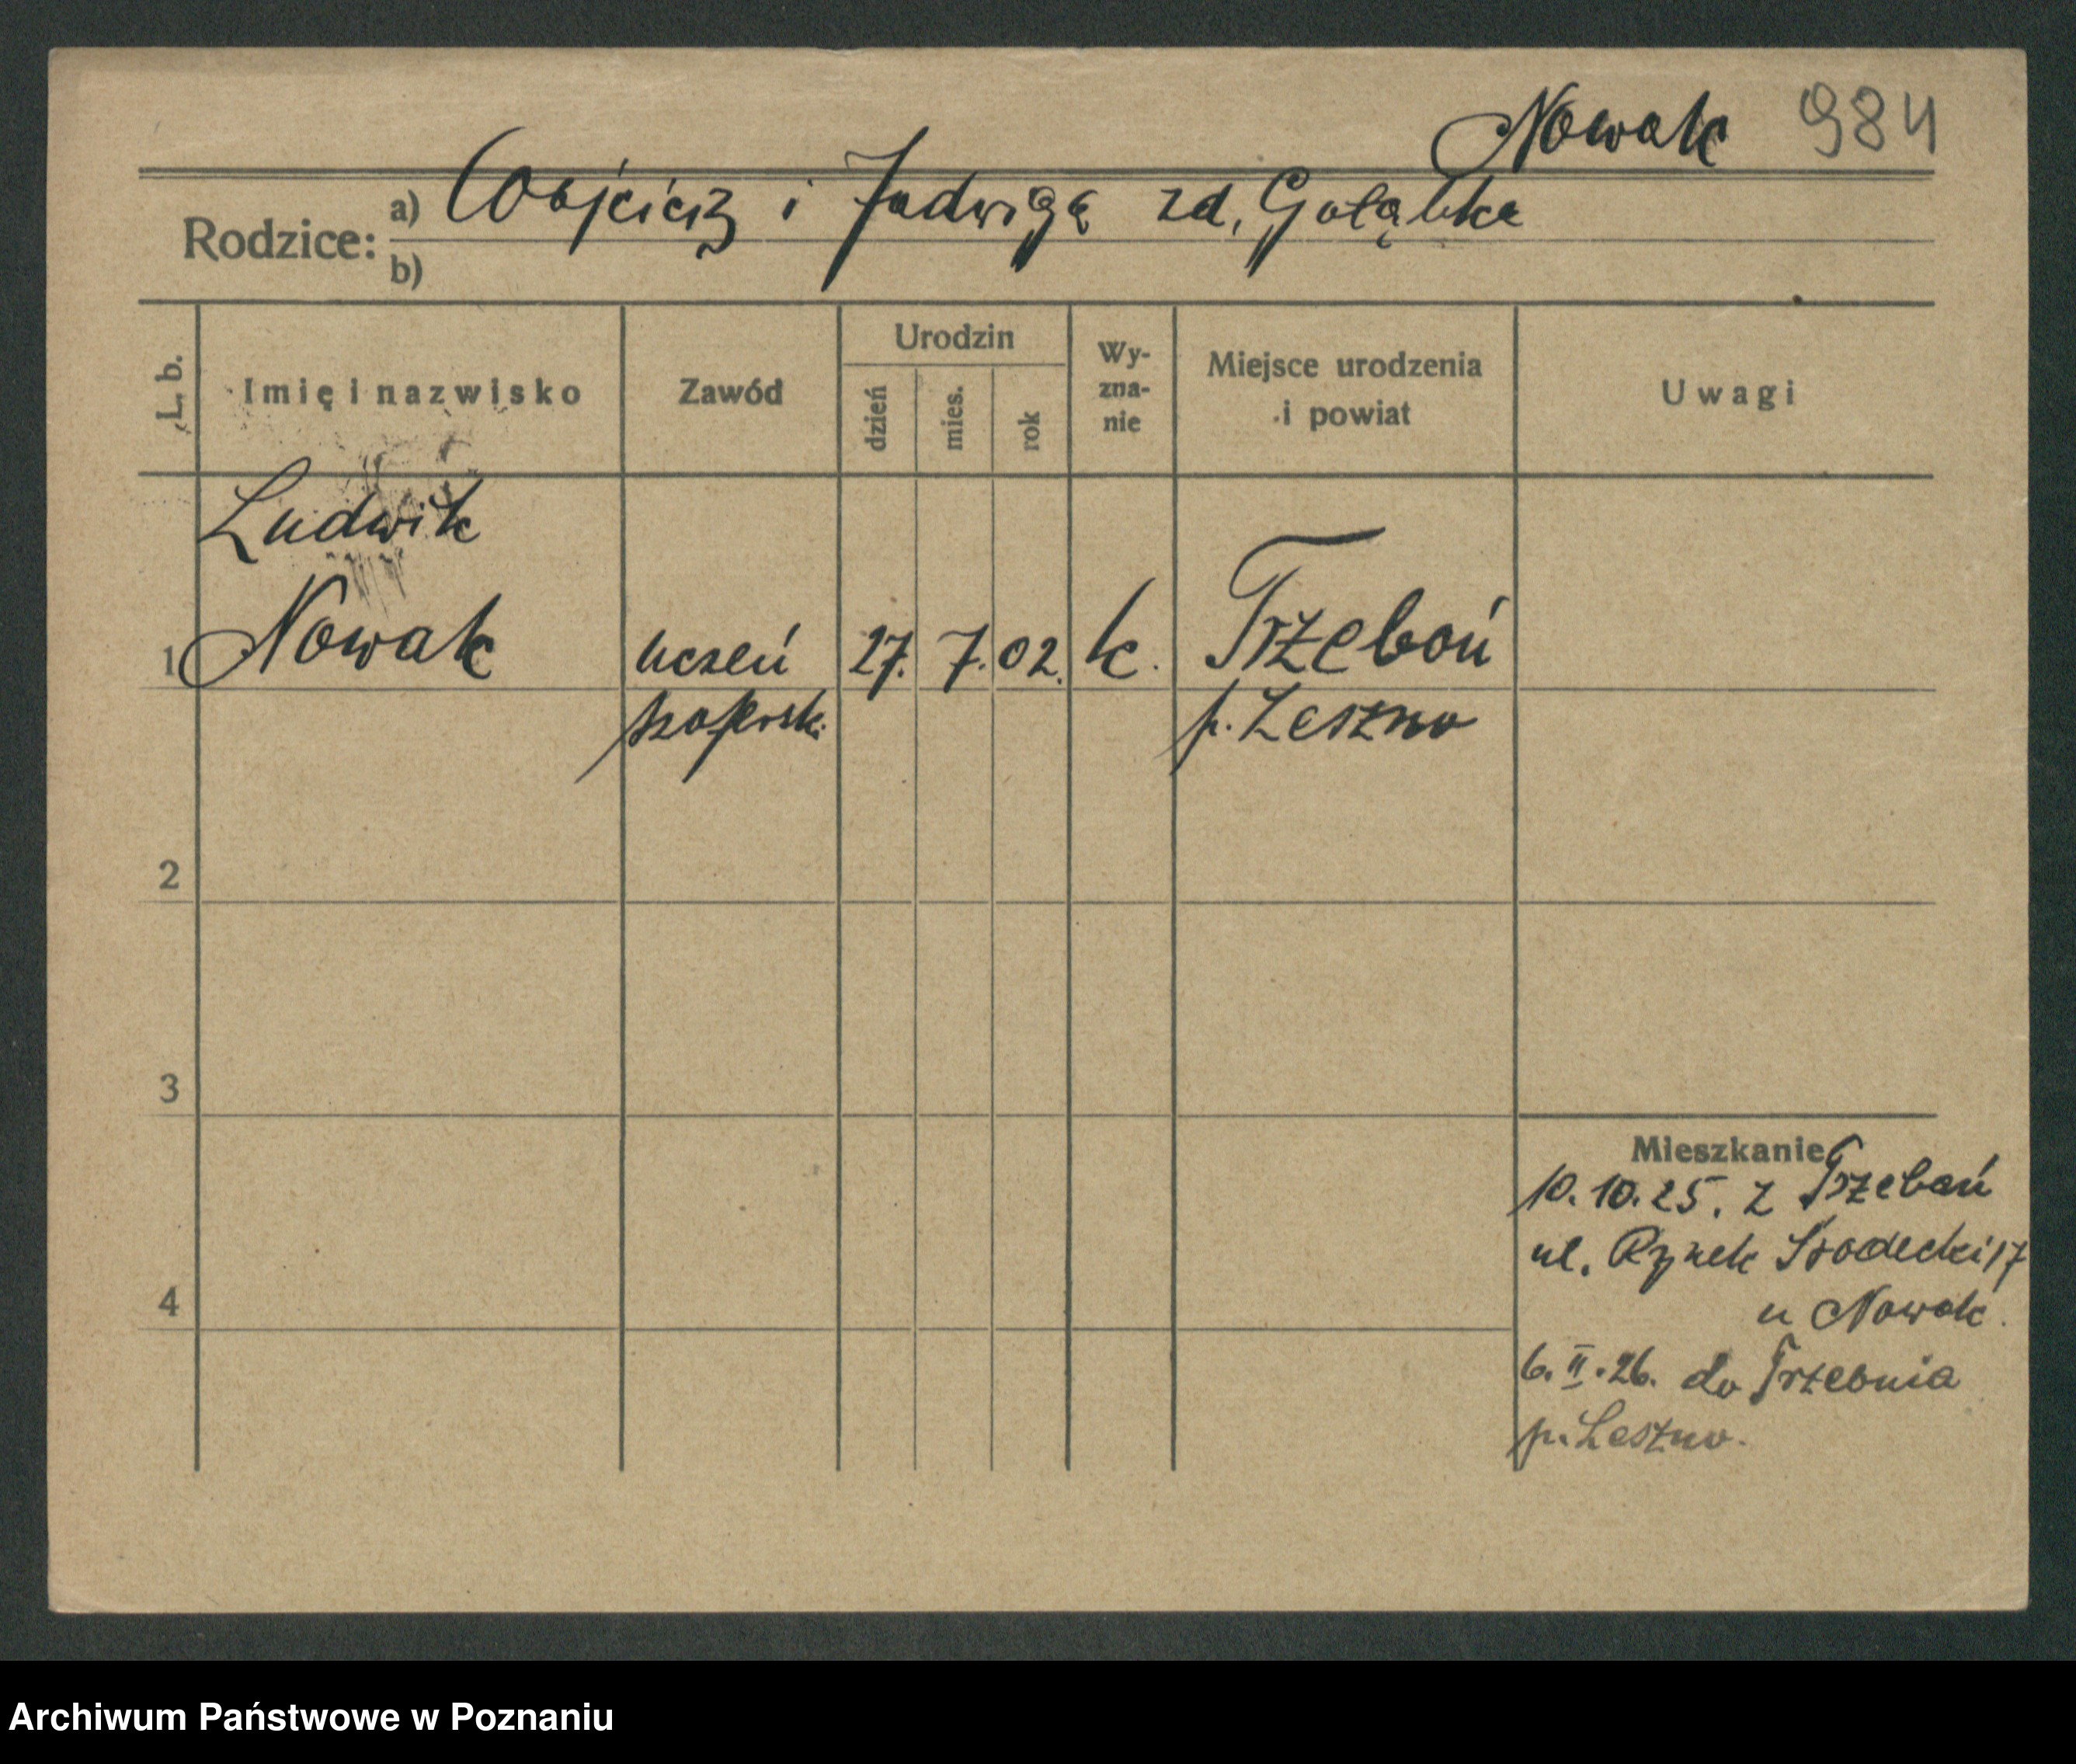 Nowak 984
Rodzice: a) Wojciech i Jadwiga zd. Gołąbka
b)
L. b.
Imię i nazwisko
Zawód
Urodzin
dzień
mies.
rok
Wy-
zna-
nie
Miejsce urodzenia
i powiat
Uwagi
Ludwik
1 Nowak uczeń 27. 7. 02. k. Trzeboń
szoferski p. Leszno
2
3
4
Mieszkanie
10.10.25. z Trzeboń
ul. Rynek Środecki 17
u Nowak.
6.II.26. do Trzebnia
p. Leszno.
Archiwum Państwowe w Poznaniu